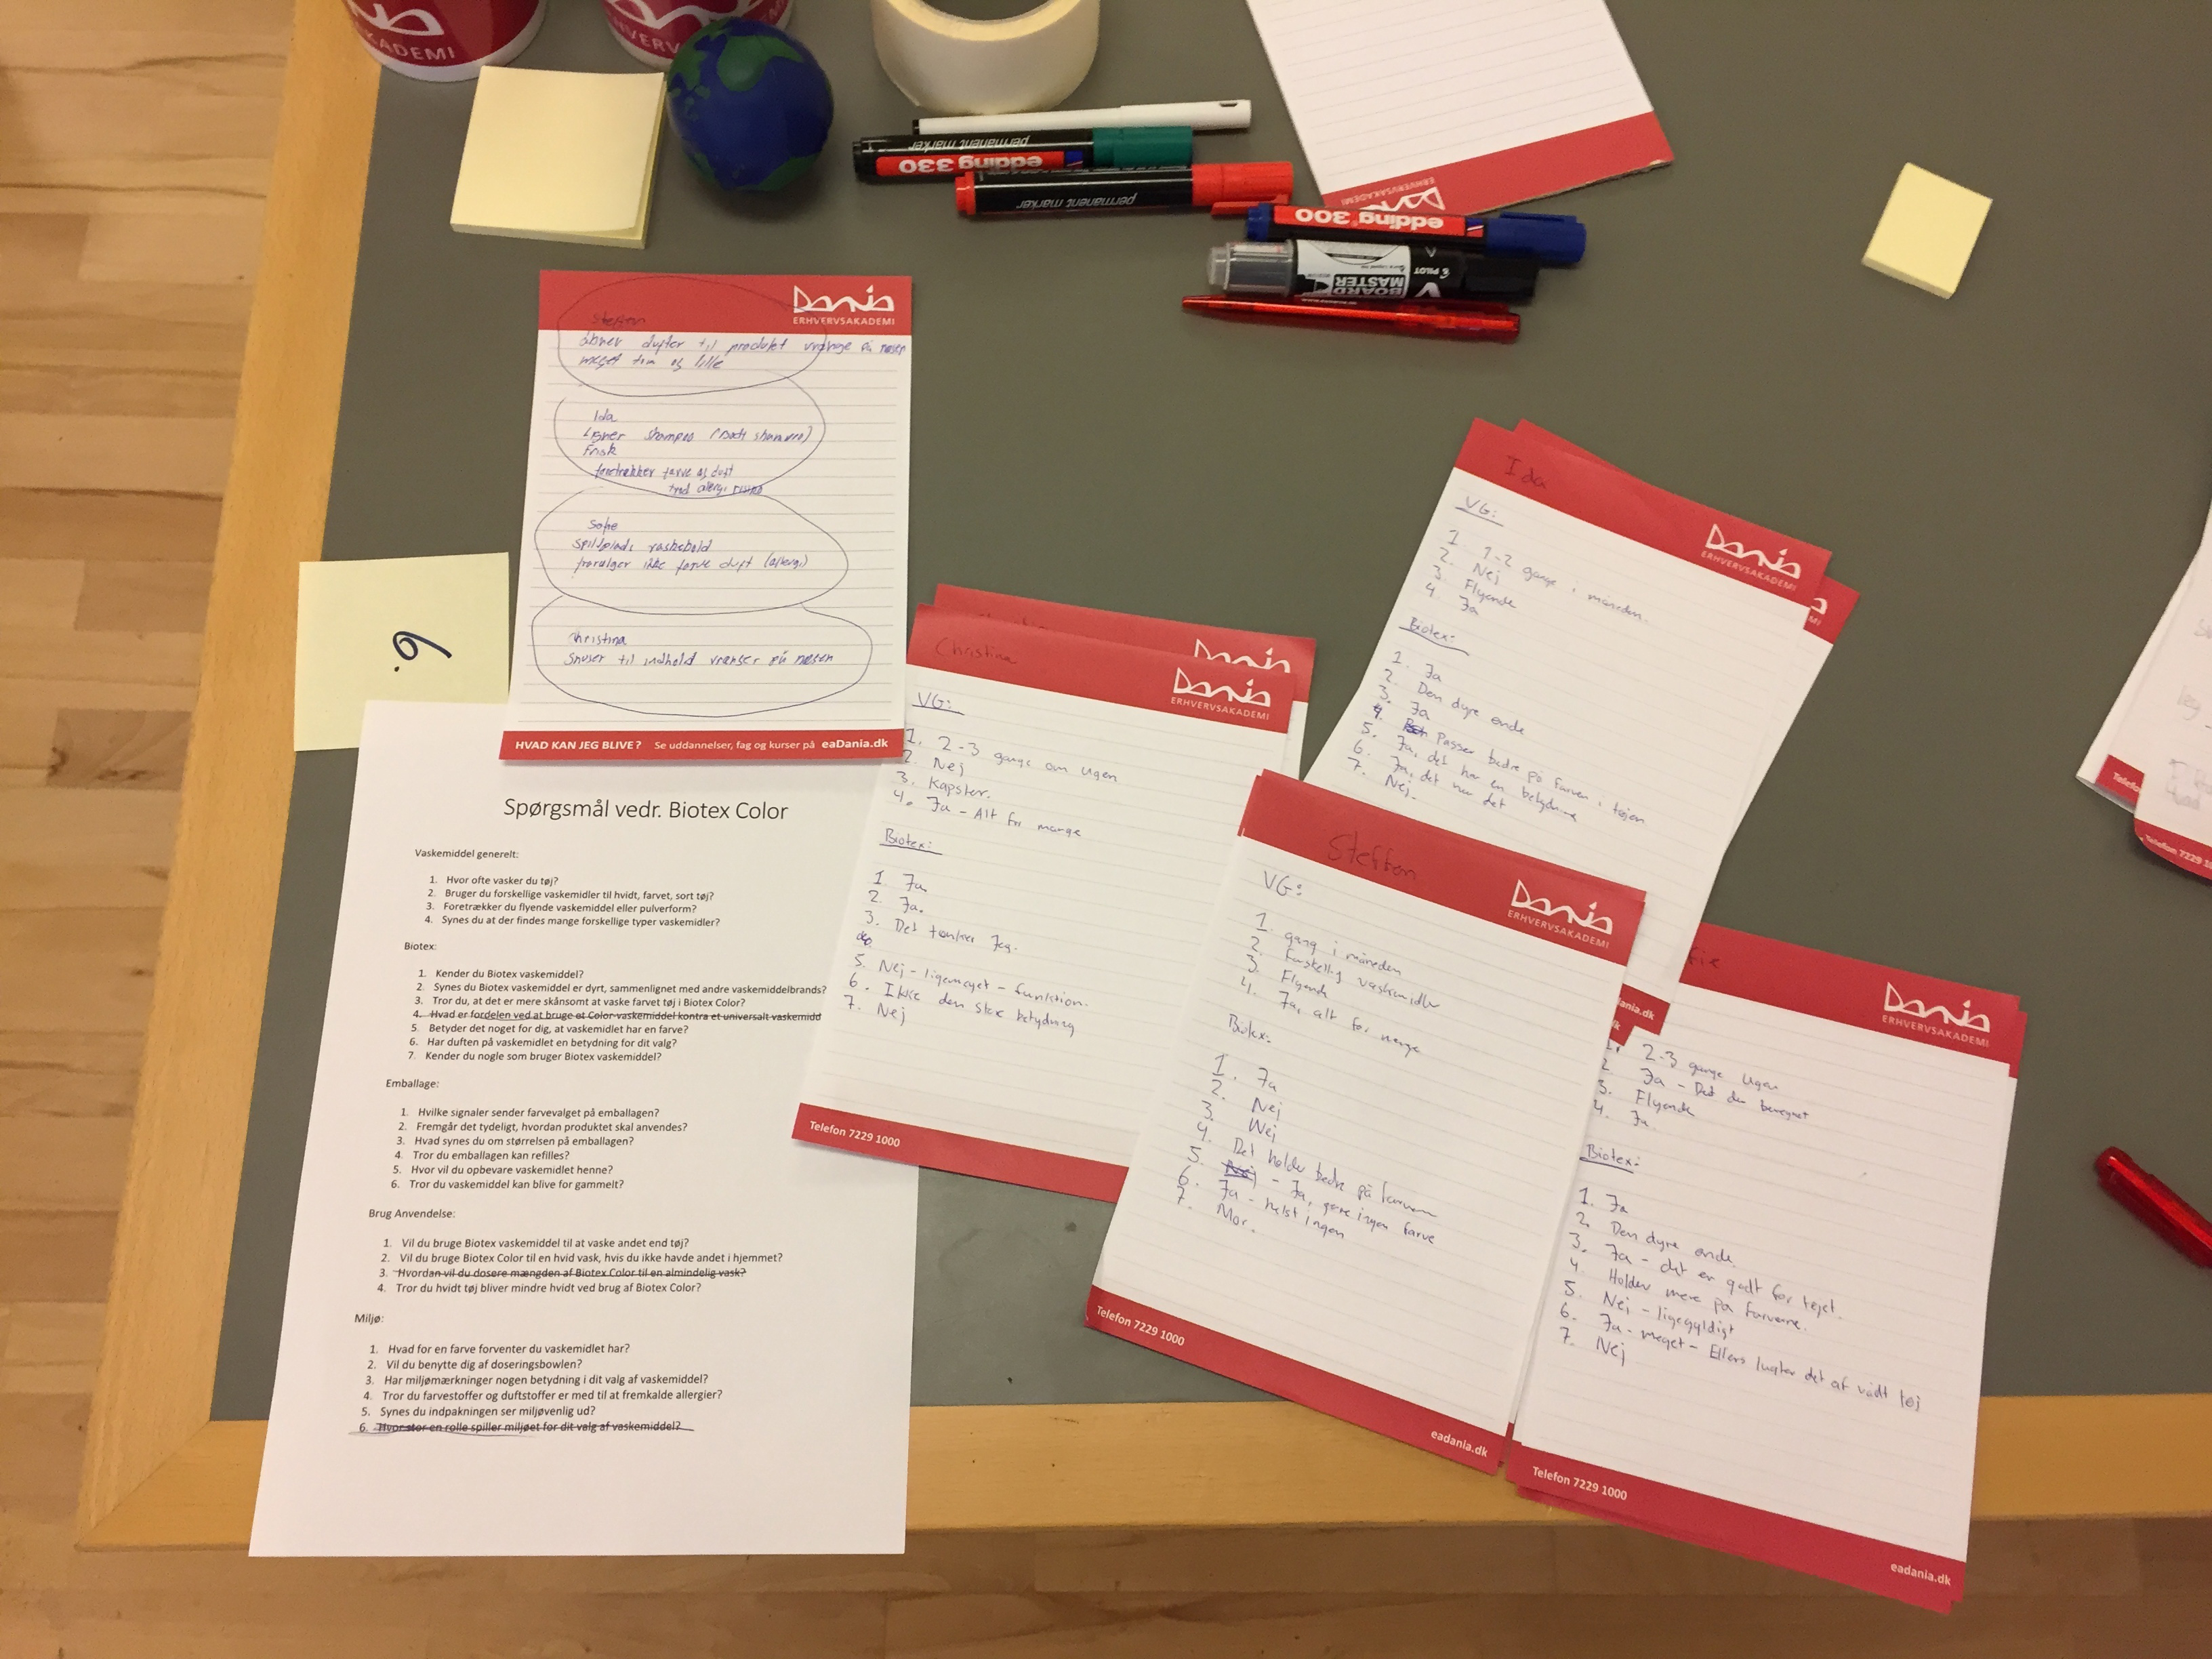 KADEMI
edding 330
permanent marker
permanent marker
edding 300
V BOARD MASTER
PILOT
Dania
ERHVERVSAKADEMI
6.
Dania
ERHVERVSAKADEMI
Steffen
åbner dufter til produkt vrænge på næsen
meget tom og lille
Ida
Ligner shampoo
Frisk
foretrækker farve og duft
trods allergi
Sofie
spildplads
ikke farve duft (allergi)
Christina
Snuser til indhold vrænser på næsen
HVAD KAN JEG BLIVE? Se uddannelser, fag og kurser på eaDania.dk
Spørgsmål vedr. Biotex Color
Vaskemiddel generelt:
1. Hvor ofte vasker du tøj?
2. Bruger du forskellige vaskemidler til hvidt, farvet, sort tøj?
3. Foretrækker du flyende vaskemiddel eller pulverform?
4. Synes du at der findes mange forskellige typer vaskemidler?
Biotex:
1. Kender du Biotex vaskemiddel?
2. Synes du Biotex vaskemiddel er dyrt, sammenlignet med andre vaskemiddelbrands?
3. Tror du, at det er mere skånsomt at vaske farvet tøj i Biotex Color?
4. Hvad er fordelen ved at bruge et Color vaskemiddel kontra et universalt vaskemidd
5. Betyder det noget for dig, at vaskemidlet har en farve?
6. Har duften på vaskemidlet en betydning for dit valg?
7. Kender du nogle som bruger Biotex vaskemiddel?
Emballage:
1. Hvilke signaler sender farvevalget på emballagen?
2. Fremgår det tydeligt, hvordan produktet skal anvendes?
3. Hvad synes du om størrelsen på emballagen?
4. Tror du emballagen kan refilles?
5. Hvor vil du opbevare vaskemidlet henne?
6. Tror du vaskemiddel kan blive for gammelt?
Brug Anvendelse:
1. Vil du bruge Biotex vaskemiddel til at vaske andet end tøj?
2. Vil du bruge Biotex Color til en hvid vask, hvis du ikke havde andet i hjemmet?
3. Hvordan vil du dosere mængden af Biotex Color til en almindelig vask?
4. Tror du hvidt tøj bliver mindre hvidt ved brug af Biotex Color?
Miljø:
1. Hvad for en farve forventer du vaskemidlet har?
2. Vil du benytte dig af doseringsbowlen?
3. Har miljømærkninger nogen betydning i dit valg af vaskemiddel?
4. Tror du farvestoffer og duftstoffer er med til at fremkalde allergier?
5. Synes du indpakningen ser miljøvenlig ud?
6. Hvor stor en rolle spiller miljøet for dit valg af vaskemiddel?
Christina
Dania
ERHVERVSAKADEMI
VG:
1. 2-3 gange om ugen
2. Nej
3. Kapsler.
4. Ja - Alt for mange
Biotex:
1. Ja
2. Ja.
3. Det tænker jeg.
5. Nej - ligemeget - funktion.
6. Ikke den store betydning
7. Nej
Telefon 7229 1000
Ida
Dania
ERHVERVSAKADEMI
VG:
1. 1-2 gange i måneden.
2. Nej
3. Flyende
4. Ja
Biotex:
1. Ja
2. Den dyre ende
3. Ja
4. Passer bedre på farven i tøjen
5. Ja, det har en betydning
6. Ja, det har det
7. Nej.
Steffen
Dania
ERHVERVSAKADEMI
VG:
1. gang i måneden
2. Forskellig vaskemidler
3. Flyende
4. Ja, alt for mange
Biotex:
1. Ja
2. Nej
3. Nej
4. Det holder bedre på farven
5. Nej - Ja, gerne ingen farve
6. Ja - helst ingen
7. Mor.
Telefon 7229 1000
eadania.dk
fie
Dania
ERHVERVSAKADEMI
1. 2-3 gange ugen
2. Ja - Det der beregnet
3. Flyende
4. Ja
Biotex:
1. Ja
2. Den dyre ende
3. Ja - det er godt for tøjet.
4. Holder mere på farverne.
5. Nej - ligegyldigt
6. Ja - meget - Ellers lugter det af vådt tøj
7. Nej
Telefon 7229 1000
eadania.dk